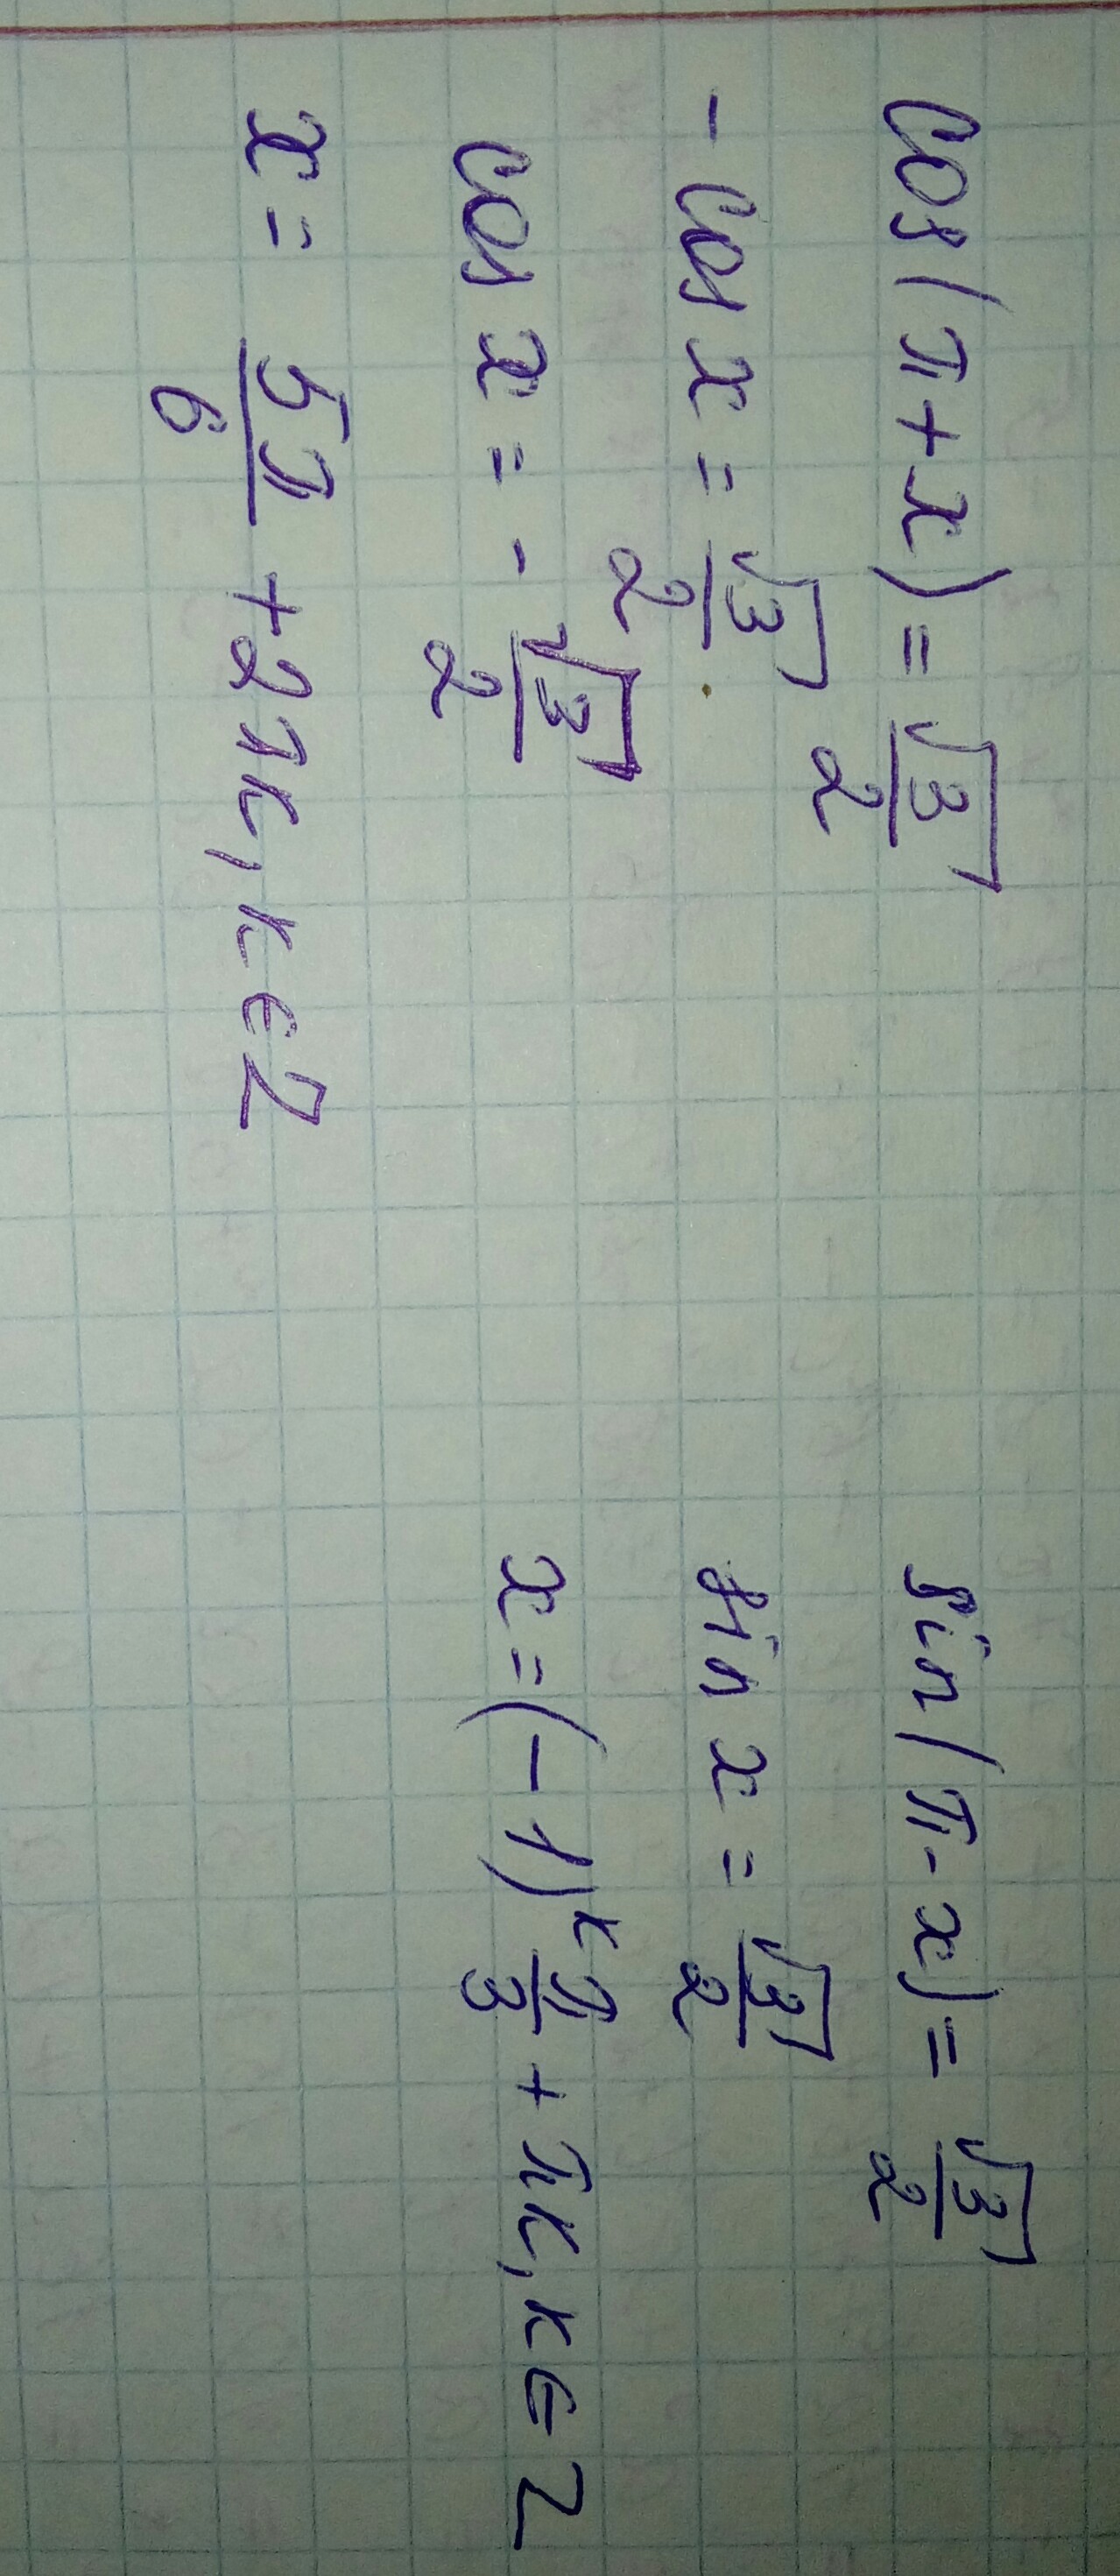 cos(π+x)=√3/2
-cos x = √3/2
cos x = -√3/2
x = 5π/6 +2πk, k∈Z
sin(π-x)=√3/2
sin x = √3/2
x=(-1)^k π/3 + πk, k∈Z